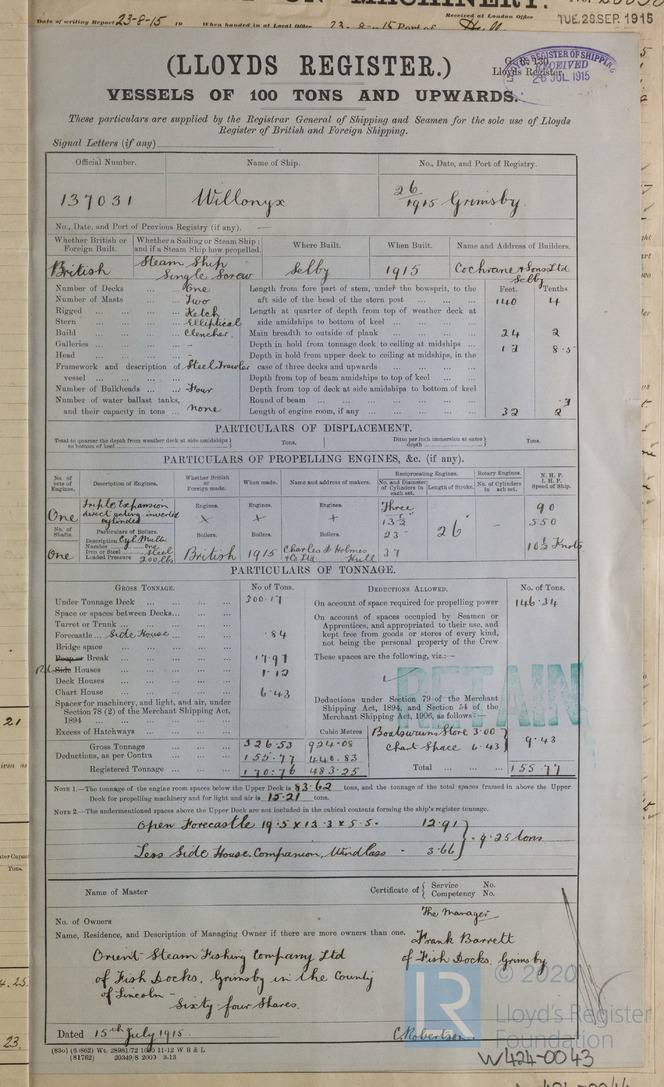 ON MACHINERY.
Date of writing Report 23-8-15 19 When handed in at Local Office 23-8-15 Port of
Received at London Office TUE. 28 SEP. 1915
(LLOYDS REGISTER.)
Lloyds Register
LLOYD'S REGISTER OF SHIPPING
RECEIVED
26 JUL 1915
VESSELS OF 100 TONS AND UPWARDS.
These particulars are supplied by the Registrar General of Shipping and Seamen for the sole use of Lloyds
Register of British and Foreign Shipping.
Signal Letters (if any)
Official Number. Name of Ship. No., Date, and Port of Registry.
137031 Willonyx 26/1915 Grimsby.
No., Date, and Port of Previous Registry (if any). —
Whether British or Foreign Built. Whether a Sailing or Steam Ship; and if a Steam Ship how propelled. Where Built. When Built. Name and Address of Builders.
British Steam Ship Single Screw Selby 1915 Cochrane & Sons Ltd Selby
Number of Decks ... One Length from fore part of stem, under the bowsprit, to the aft side of the head of the stern post Feet. 140 Tenths 4
Number of Masts ... Two
Rigged ... Ketch Length at quarter of depth from top of weather deck at side amidships to bottom of keel
Stern ... Elliptical
Build ... Clencher. Main breadth to outside of plank 24 2
Galleries ... - Depth in hold from tonnage deck to ceiling at midships 12 8.5
Head ... - Depth in hold from upper deck to ceiling at midships, in the case of three decks and upwards
Framework and description of vessel Steel Trawler
Depth from top of beam amidships to top of keel
Number of Bulkheads ... Four Depth from top of deck at side amidships to bottom of keel
Number of water ballast tanks, and their capacity in tons ... none Round of beam .3
Length of engine room, if any 32 2
PARTICULARS OF DISPLACEMENT.
Total to quarter the depth from weather deck at side amidships to bottom of keel Tons. Ditto per inch immersion at same depth Tons.
PARTICULARS OF PROPELLING ENGINES, &c. (if any).
No. of sets of Engines. Description of Engines. Whether British or Foreign made. When made. Name and address of makers. Reciprocating Engines. Rotary Engines. N. H. P. I. H. P. Speed of Ship.
No. and Diameter of Cylinders in each set. Length of Stroke. No. of Cylinders in each set.
One Triple Expansion direct acting inverted cylinder Engines. Engines. Engines. Three 13½ 23 37 26" — 90 550 10½ Knots
No. of Shafts. Particulars of Boilers. Boilers. Boilers. Boilers.
Description Cyl. Multi
Number One
Iron or Steel Steel
Loaded Pressure 200 lbs
One British 1915 Charles D Holmes & Co Ltd Hull
PARTICULARS OF TONNAGE.
GROSS TONNAGE. No of Tons. DEDUCTIONS ALLOWED. No. of Tons.
Under Tonnage Deck 300.17 On account of space required for propelling power 146.34
Space or spaces between Decks
Turret or Trunk
Forecastle Side House .84
Bridge space
Poop or Break 17.97
Side Houses 1.12
Deck Houses
Chart House 6.43
Spaces for machinery, and light, and air, under Section 78 (2) of the Merchant Shipping Act, 1894
Excess of Hatchways
On account of spaces occupied by Seamen or Apprentices, and appropriated to their use, and kept free from goods or stores of every kind, not being the personal property of the Crew
These spaces are the following, viz.:—
RETAIN
Deductions under Section 79 of the Merchant Shipping Act, 1894, and Section 54 of the Merchant Shipping Act, 1906, as follows:—
Cubic Metres Boatswains Store 3.00
Chart Space 6.43 9.43
Gross Tonnage 326.53 924.08
Deductions, as per Contra 155.77 440.83
Registered Tonnage 170.76 483.25 Total 155.77
NOTE 1.—The tonnage of the engine room spaces below the Upper Deck is 83.62 tons, and the tonnage of the total spaces framed in above the Upper
Deck for propelling machinery and for light and air is 15.21 tons.
NOTE 2.—The undermentioned spaces above the Upper Deck are not included in the cubical contents forming the ship's register tonnage.
Open Forecastle 19.5 x 13.3 x 5.5. 12.91
= 9.25 tons
Less Side House, Companion, Windlass - 3.66
Name of Master Certificate of Service No. Competency No.
No. of Owners
Name, Residence, and Description of Managing Owner if there are more owners than one.
The Manager
Frank Barrett
of Fish Docks, Grimsby
Orient Steam Fishing Company Ltd
of Fish Docks, Grimsby in the County
of Lincoln -
Sixty four Shares.
Dated 15th July 1915. C. Robertson
© 2020
LR
Lloyd's Register
Foundation
W424-0043